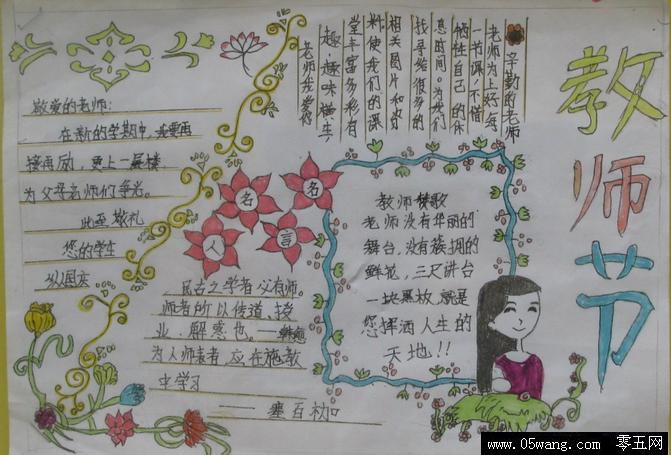 教师节
辛勤的老师
老师为上好每
一节课,不惜
牺牲自己的休
息时间。为我们
找寻给很多的
相关图片和资
料,使我们的课
堂丰富多彩有
趣,趣味横生
老师我爱你
敬爱的老师:
在新的学期中,我要再
接再励,更上一层楼,
为父母老师们争光。
此至敬礼
您的学生
名人名言
教师赞歌
老师没有华丽的
舞台,没有簇拥的
鲜花,三尺讲台
一块黑板,就是
您挥洒人生的
天地!!
古之学者必有师。
师者所以传道,授
业,解惑也。——韩愈
为人师表者,应在施教
中学习
www.05wang.com 零五网